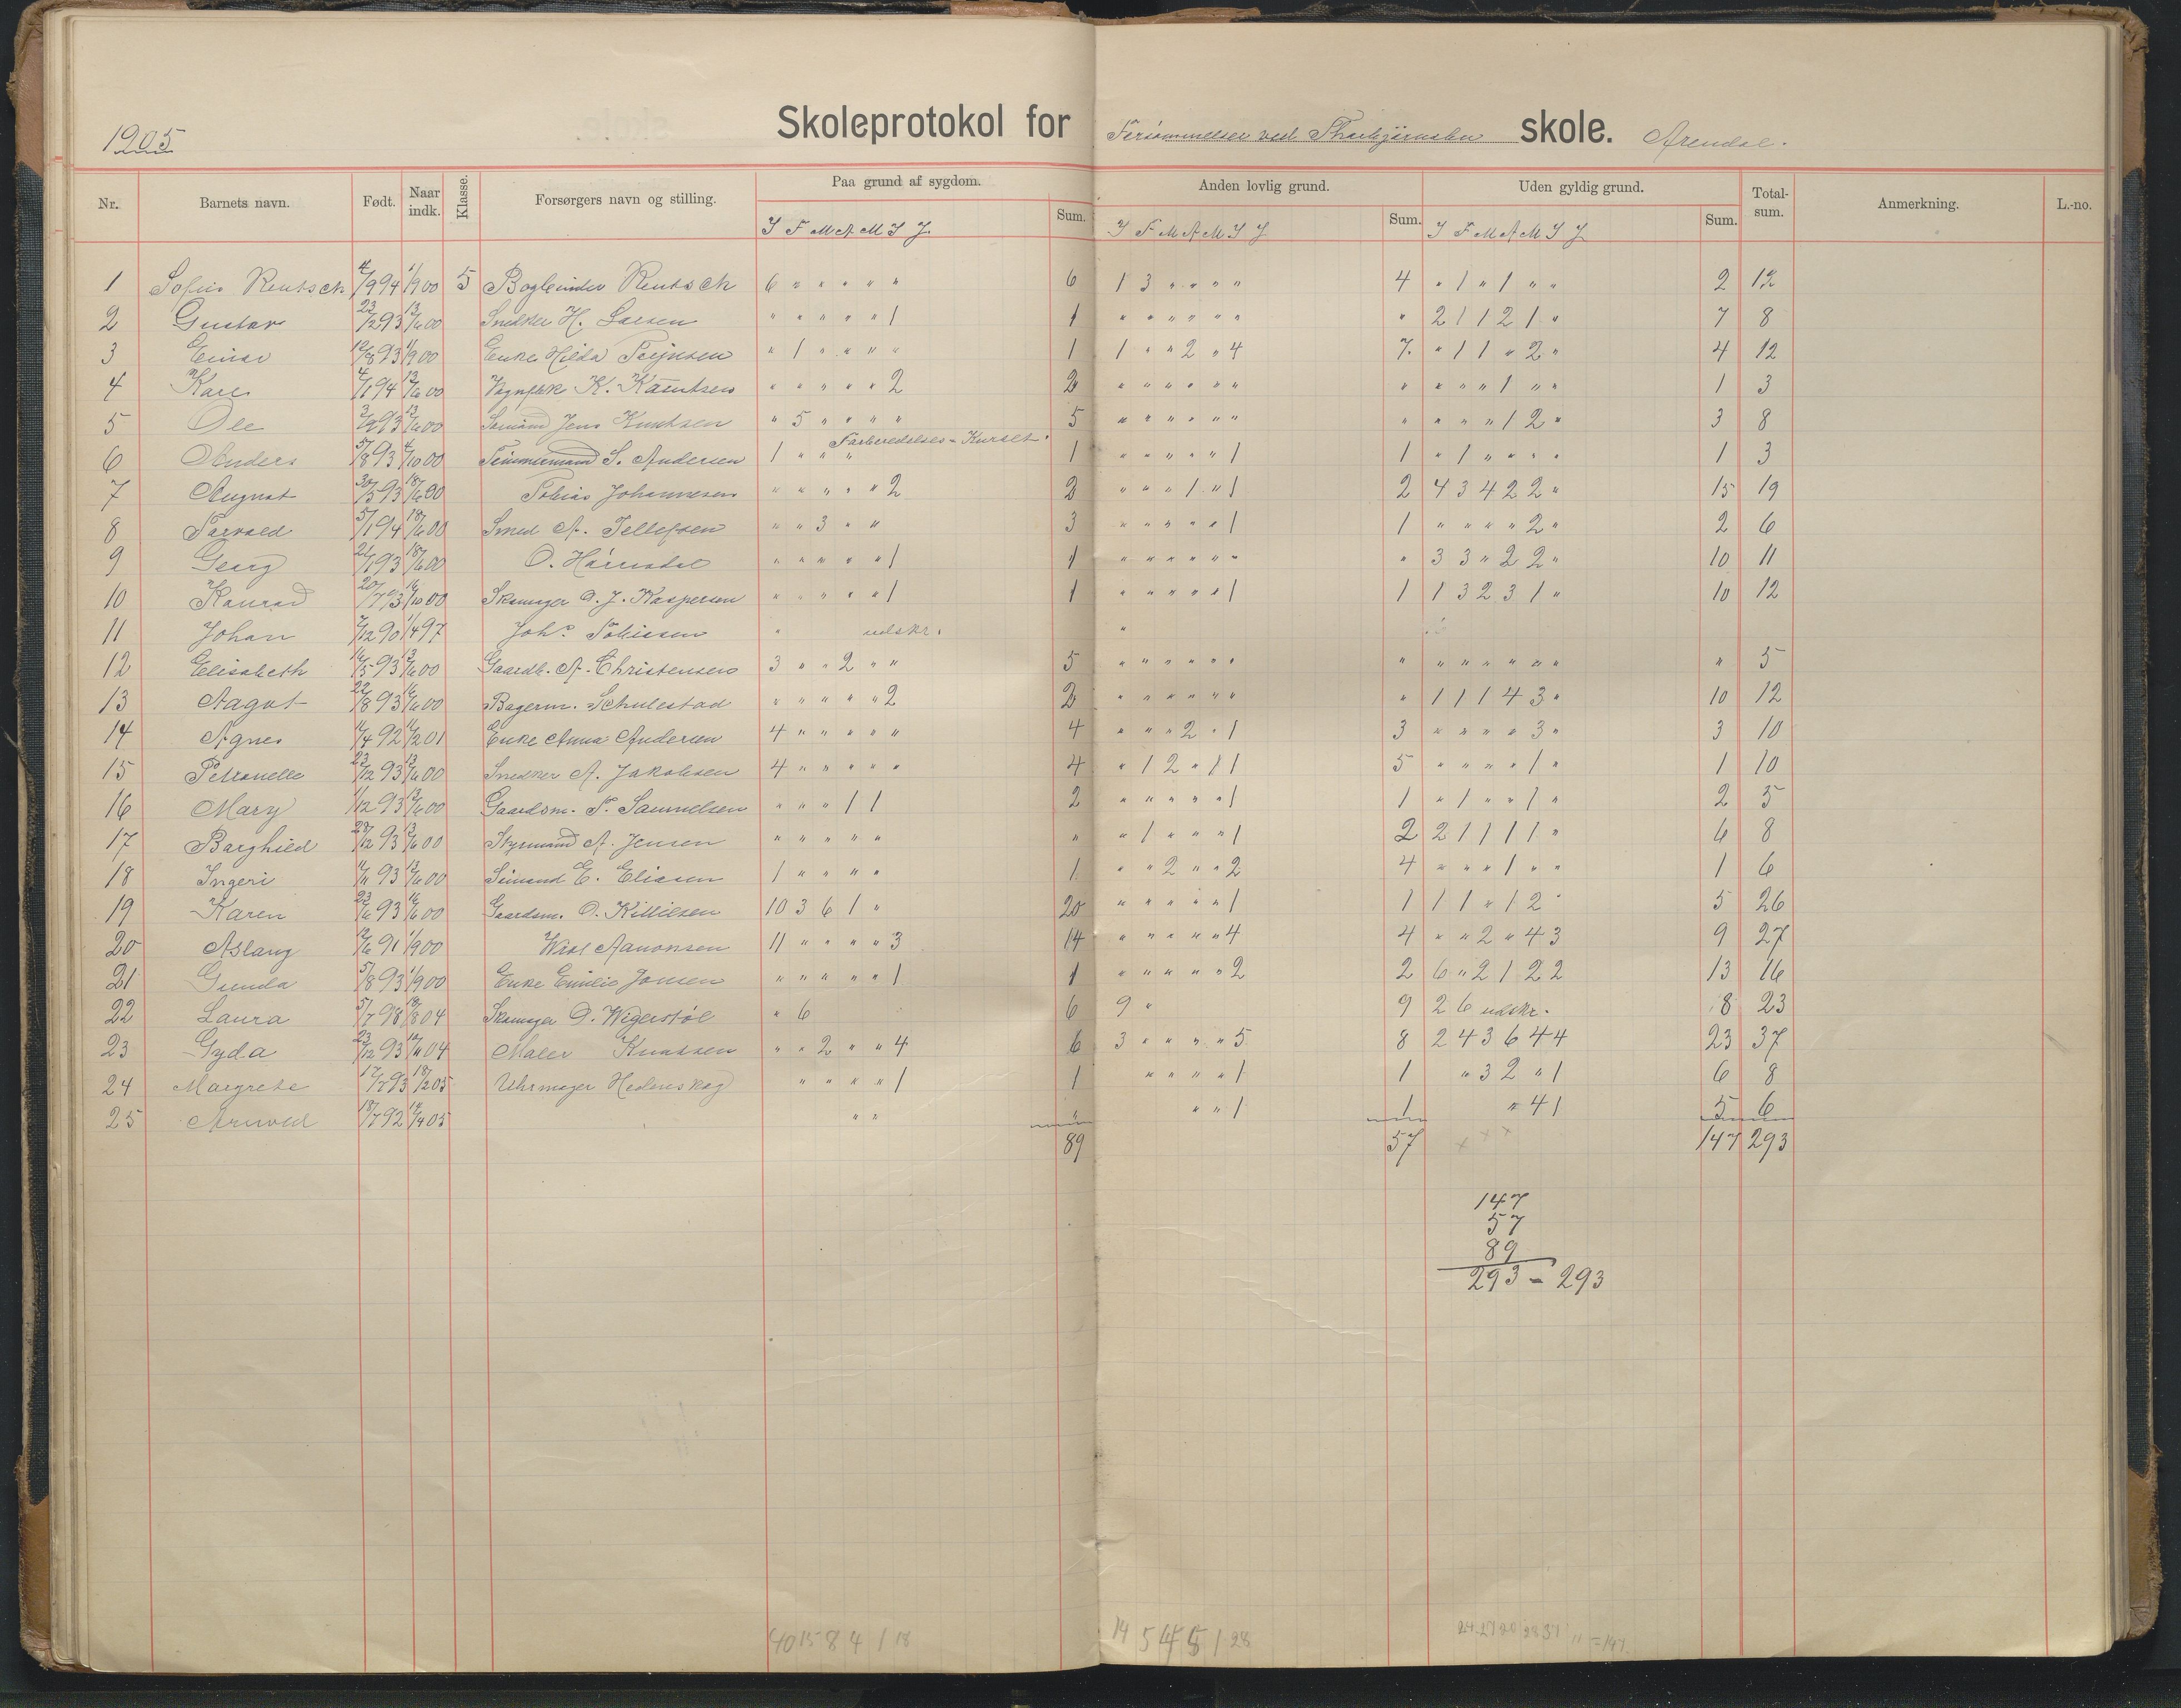 1905
Skoleprotokol for Forsømmelser ved Thorbjørnsbu skole. Arendal.
Nr. Barnets navn. Født. Naar indk. Klasse. Forsørgers navn og stilling. Paa grund af sygdom. Sum. Anden lovlig grund. Sum. Uden gyldig grund. Sum. Total-sum. Anmerkning. L.-no.
J F M A M J J J F M A M J J J F M A M J J
1 Sofus Rentsch 4/9 94 1/9 00 5 Boghinder Rentsch 6 " " " " " 6 1 3 " " " " 4 " 1 " 1 " " 2 12
2 Gustav 23/12 93 13/6 00 Snedker H. Larsen " " " " " 1 1 " " " " " " " 2 1 1 2 1 " 7 8
3 Einar 12/8 93 1/9 00 Enke Hilda Terjesen " 1 " " " " 1 1 " " 2 " 4 7 " 1 1 " 2 " 4 12
4 Karl 4/1 94 13/6 00 K. Knutsen " " " " " 2 2 " " " " " " " " " " 1 " " 1 3
5 Ole 13/6 00 Sømand Jens Knutsen " 5 " " " " 5 " " " " " " " " " " 1 2 " 3 8
Forberedelses-Kurset
6 Anders 5/8 93 4/10 00 Tømmermand S. Andersen 1 " " " 1 " " " " " 1 1 " 1 " " " " 1 3
7 August 30/5 93 18/6 00 Tobias Johannesen " " " " " 2 2 " " " 1 " 1 2 4 3 4 2 2 " 15 19
8 Torvald 5/1 94 18/6 00 Smed A. Tellefsen " " 3 " " 3 " " " " " 1 1 " " " " 2 " 2 6
9 Georg 21/1 93 18/6 00 O. Hørsdal " " " " " 1 1 " " " " " " " 3 3 " 2 2 " 10 11
10 Konrad 20/7 93 16/10 00 Skomager O. J. Kaspersen " " " " " 1 1 " " " " " 1 1 1 3 2 3 1 " 10 12
11 Johan 7/12 90 1/4 97 Johs. Tobiesen " udskr. "
12 Elisabeth 16/5 93 13/6 00 Gaardb. A. Christensen 3 " " 2 " " 5 " " " " " " " " " " " " " " 5
13 Aagot 22/8 93 16/6 00 Bagerm. Schulestad " " " " " 2 2 " " " " " " " 1 1 1 4 3 " 10 12
14 Agnes 11/4 92 11/2 01 Enke Anna Andersen 4 " " " " " 4 " " " 2 " 1 3 " " " " 3 " 3 10
15 Petronelle 23/12 93 13/6 00 Snedker A. Jakobsen 4 " " " " " 4 " 1 2 " 1 1 5 " " " " 1 " 1 10
16 Mary 1/12 93 13/6 00 Gaardsm. T. Samuelsen " " " 1 1 2 " " " " " 1 1 " 1 " " 1 " 2 5
17 Borghild 29/12 93 13/6 00 Styrmand A. Jensen " " " " " " " 1 " " " 1 2 2 1 1 1 1 " 6 8
18 Ingeri 11/11 93 13/6 00 Sømand E. Eliasen 1 " " " " 1 " " 2 " " 2 4 " " " 1 " " 1 6
19 Karen 23/6 93 16/6 00 Gaardsm. O. Killielsen 10 3 6 1 " 20 " " " " " 1 1 1 1 " 1 2 " 5 26
20 Aslaug 12/6 91 1/9 00 Aanonsen 11 " " " " 3 14 " " " " " 4 4 " " 2 " 4 3 9 27
21 Gunda 5/8 93 1/9 00 Enke Emilie Jonsen " " " " " 1 1 " " " " " 2 2 6 " 2 1 2 2 13 16
22 Laura 5/7 98 18/8 04 Skomager O. Wigerstøl " 6 6 9 " 9 2 6 udskr. 8 23
23 Gyda 23/12 93 12/11 04 Maler Knutsen " " 2 " " 4 6 3 " " " " 5 8 2 4 3 6 4 4 23 37
24 Margrete 17/7 93 18/2 05 Uhrmager Hedenskog " " " " 1 1 " " " " 1 1 " 3 2 " 1 6 8
25 Arnold 18/7 92 14/4 05 " " " " " 1 1 " 4 1 5 6
89 57 147 293
147
57
89
293 - 293
40 15 8 4 1 18 14 5 4 5 1 28 = 147